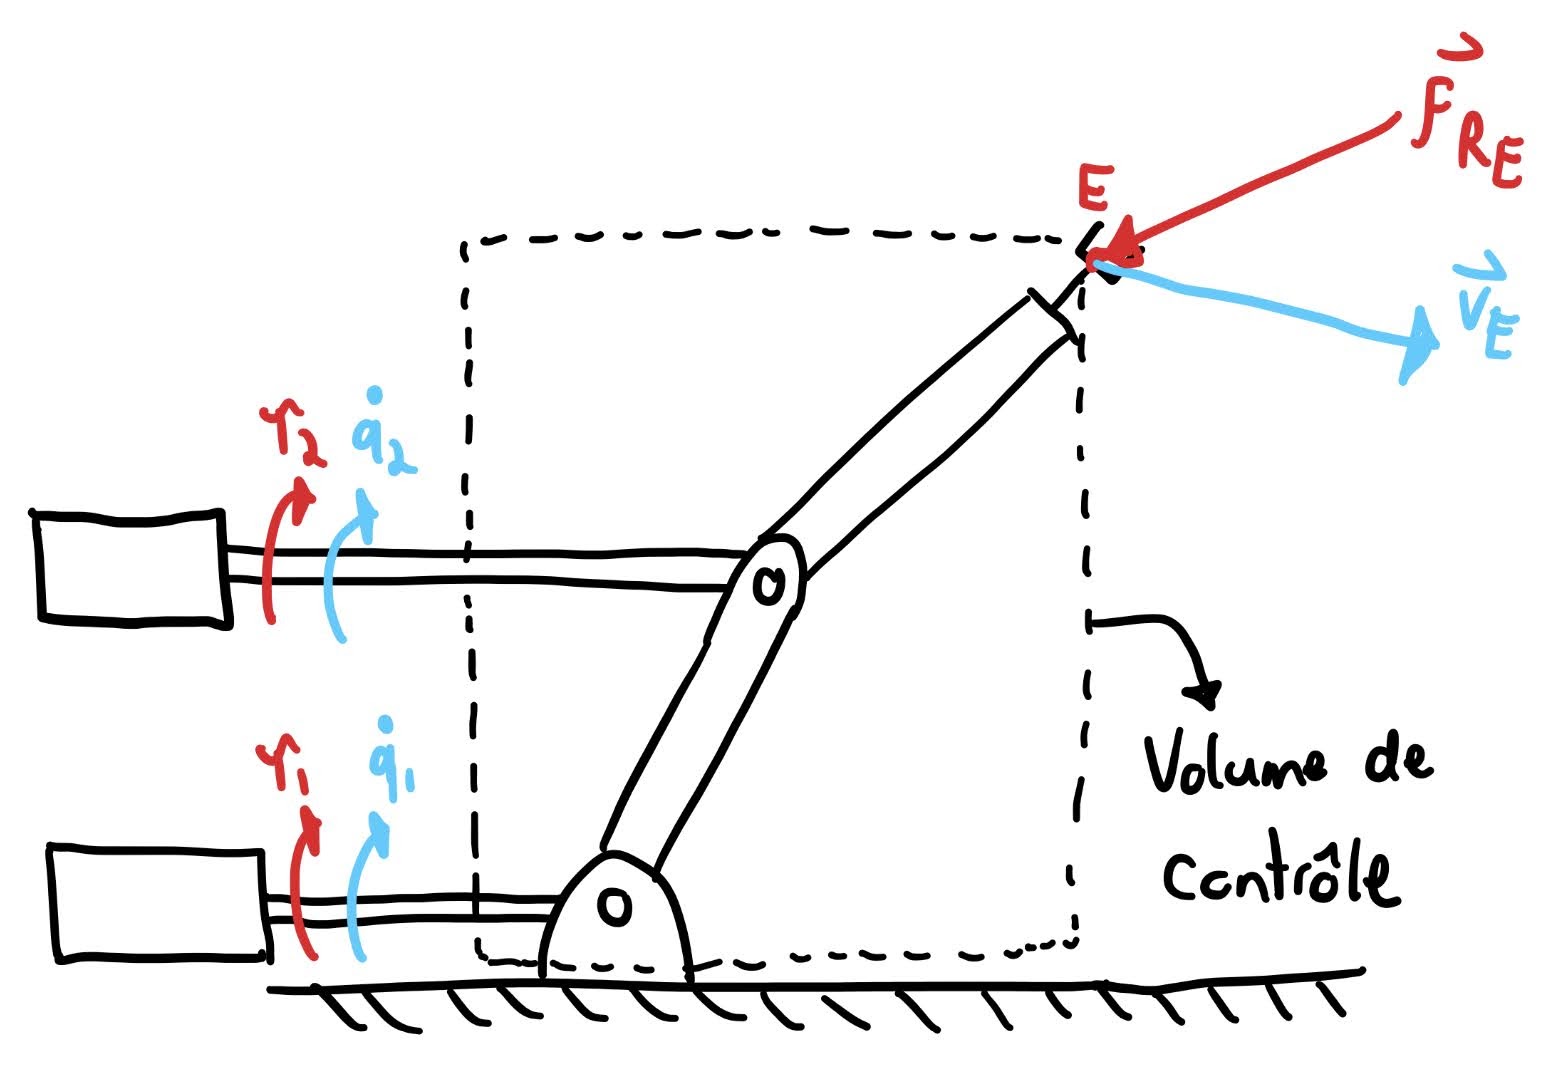 f⃗_R_E
E
v⃗_E
τ₂ q̇₂
τ₁ q̇₁
Volume de
Contrôle